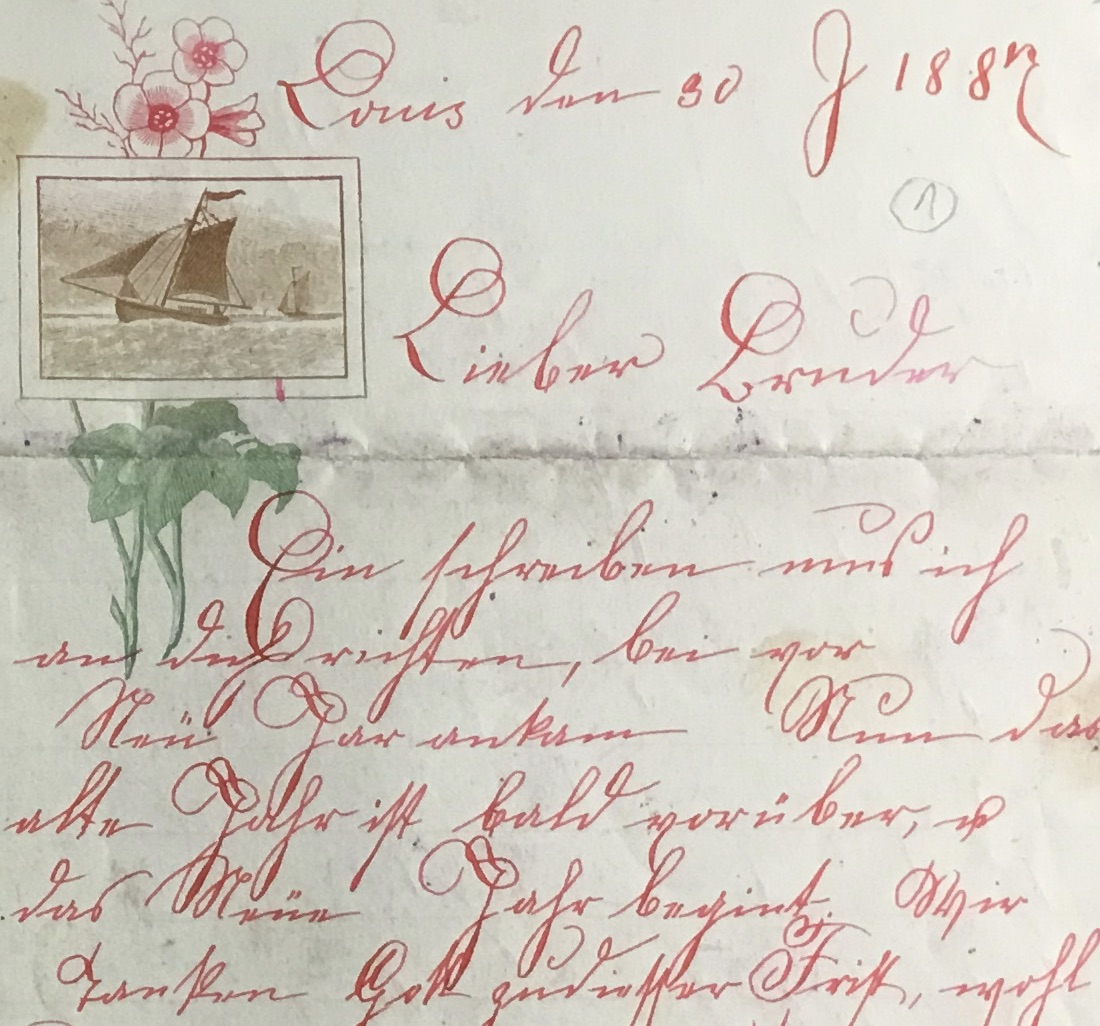 Louis den 30 J 1887
1
Lieber Bruder
Ein schreiben mus ich
an dich richten, bei vor
Neü Jar ankam Nun das
alte Jahr ist bald vorüber, u
das Neüe Jahr begint. Wir
Tanken Gott zu diesser Frist, wohl